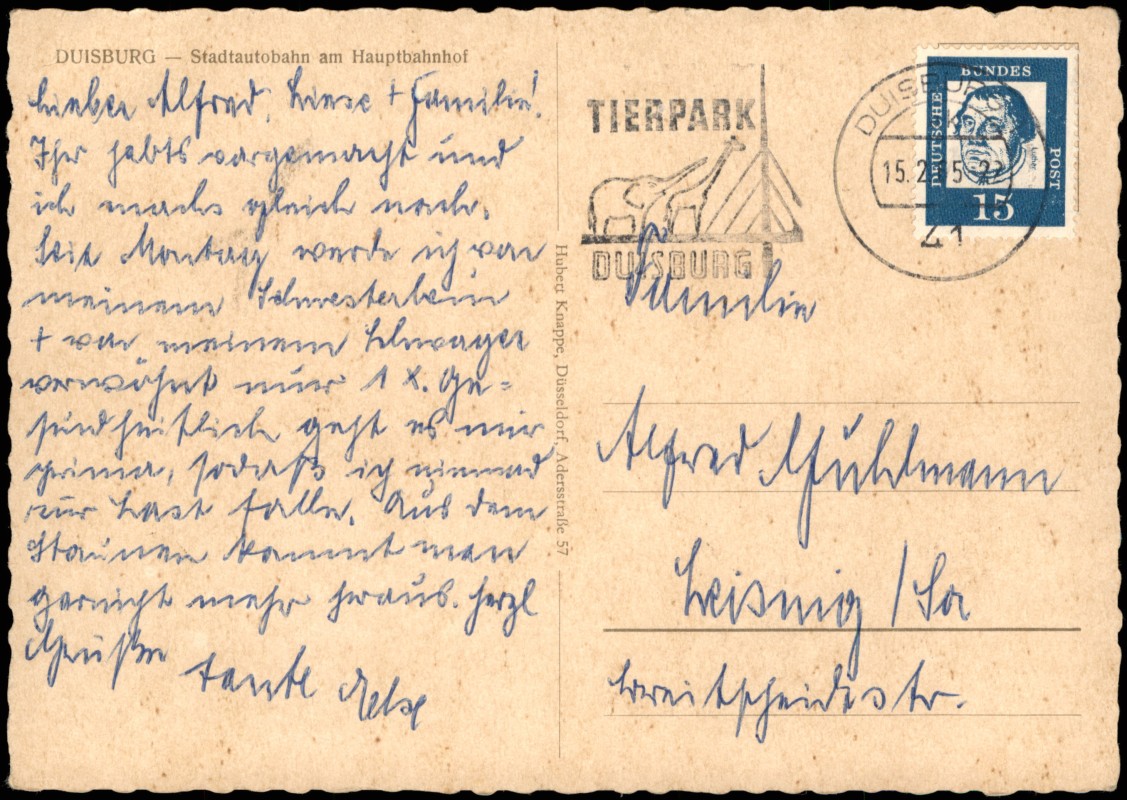 DUISBURG — Stadtautobahn am Hauptbahnhof
Lieber Alfred, Liese + Familie!
Ihr habts vorgemacht und
ich machs gleich nach.
Seit Montag werde ich von
meinem Schwesterlein
+ von meinem Schwager
verwöhnt nur 1 X. Ge=
sundheitlich geht es mir
prima, sodaß ich niemand
zur Last falle. Aus dem
Staunen kommt man
garnicht mehr heraus. Herzl
Grüße Tante Else
Hubert Knappe, Düsseldorf, Adersstraße 57
TIERPARK
DUISBURG
DUISBURG
15.2.65-22
41
DEUTSCHE
BUNDES
POST
15
Familie
Alfred
Leisnig / Sa
Breitscheidestr.